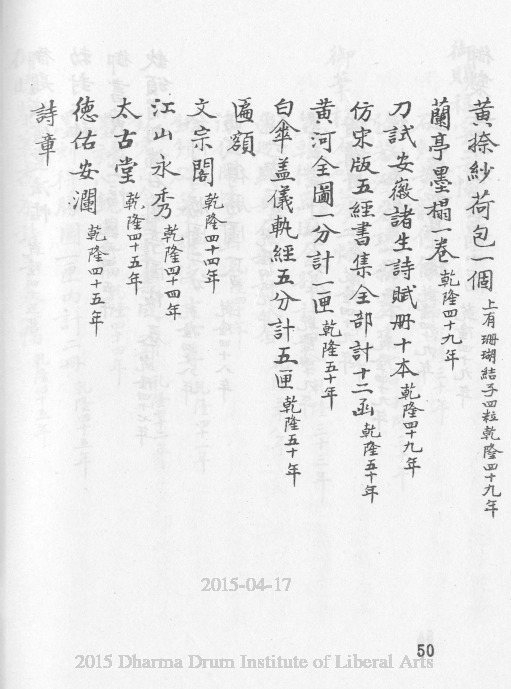 黄捺紗荷包一個 上有珊瑚結子四粒乾隆四十九年
蘭亭墨榻一卷 乾隆四十九年
刀試安徽諸生詩賦冊十本 乾隆四十九年
仿宋版五經書集全部計十二函 乾隆五十年
黄河全圖一分計一匣 乾隆五十年
白傘盖儀軌經五分計五匣 乾隆五十年
匾額
文宗閣 乾隆四十四年
江山永秀 乾隆四十四年
太古堂 乾隆四十五年
德佑安瀾 乾隆四十五年
詩章
2015-04-17
50
2015 Dharma Drum Institute of Liberal Arts